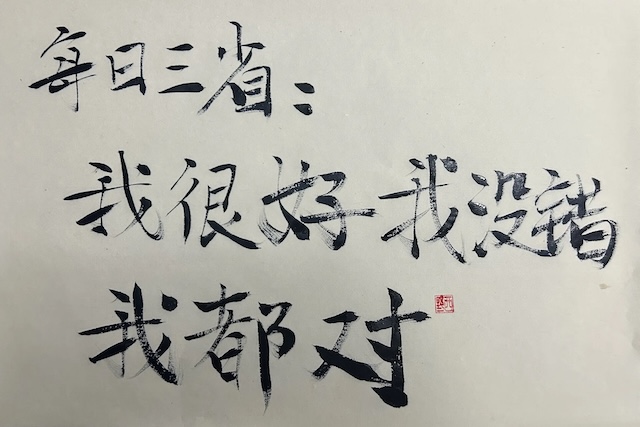 每日三省：
我很好 我没错
我都对